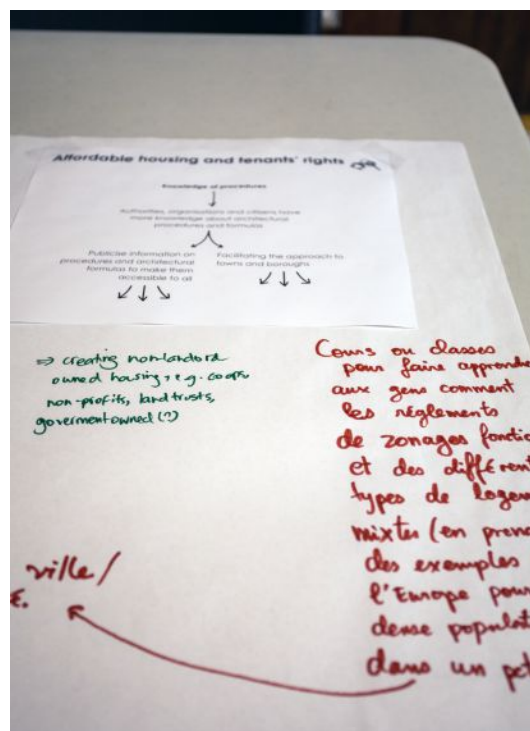 Affordable housing and tenants' rights
Knowledge of procedures
Authorities, organisations and citizens have
more knowledge about architectural
procedures and formulas
Publicise information on
procedures and architectural
formulas to make them
accessible to all
Facilitating the approach to
towns and boroughs
⇒ creating non-landlord
owned housing, e.g. coops,
non-profits, land trusts,
goverment owned (?)
Cours ou classes
pour faire apprendre
aux gens comment
les règlements
de zonages fonctio
et des différent
types de logem
mixtes (en prena
des exemples
l'Europe pour
dense populat
dans un pet
ville/
E.